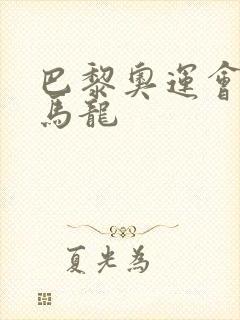 巴黎奧運會
馬龍
夏光為